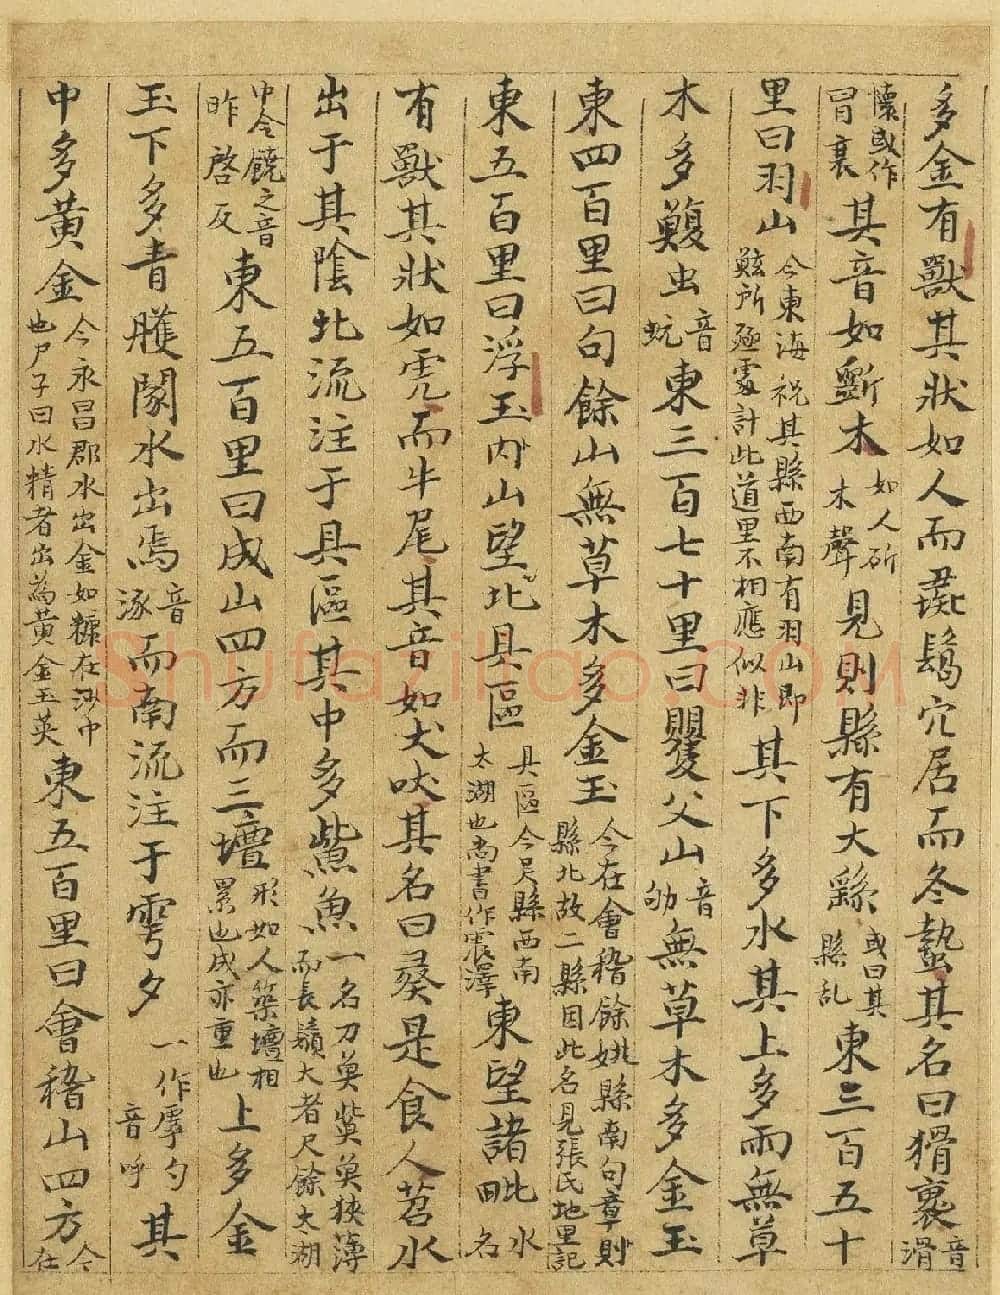 多金有獸其狀如人而彘鬣穴居而冬蟄其名曰猾褱音滑
懷或作冐褱其音如斲木如人斫木聲見則縣有大繇或曰其縣乱東三百五十
里曰羽山今東海祝其縣西南有羽山即鯀所殛處計此道里不相應似非其下多水其上多雨無草
木多蝮虫音蚖東三百七十里曰瞿父山音劬無草木多金玉
東四百里曰句餘山無草木多金玉今在會稽餘姚縣南句章則縣北故二縣因此名見張氏地里記
東五百里曰浮玉内山望北具區具區今吳縣西南太湖也尚書作震澤東望諸毗水名
有獸其狀如虎而牛尾其音如犬吠其名曰彘是食人苕水
出于其陰北流注于具區其中多鮆魚一名刀魚鮆魚狹薄而長鬚大者尺餘太湖
中今饒之音昨啓反東五百里曰成山四方而三壇形如人築壇相累也成亦重也上多金
玉下多青雘水出焉音涿而南流注于雩夕一作虖勺音呼其
中多黄金今永昌郡水出金如糠在沙中也尸子曰水精者出為黄金玉英東五百里曰會稽山四方今在
Shufaziliao.COM